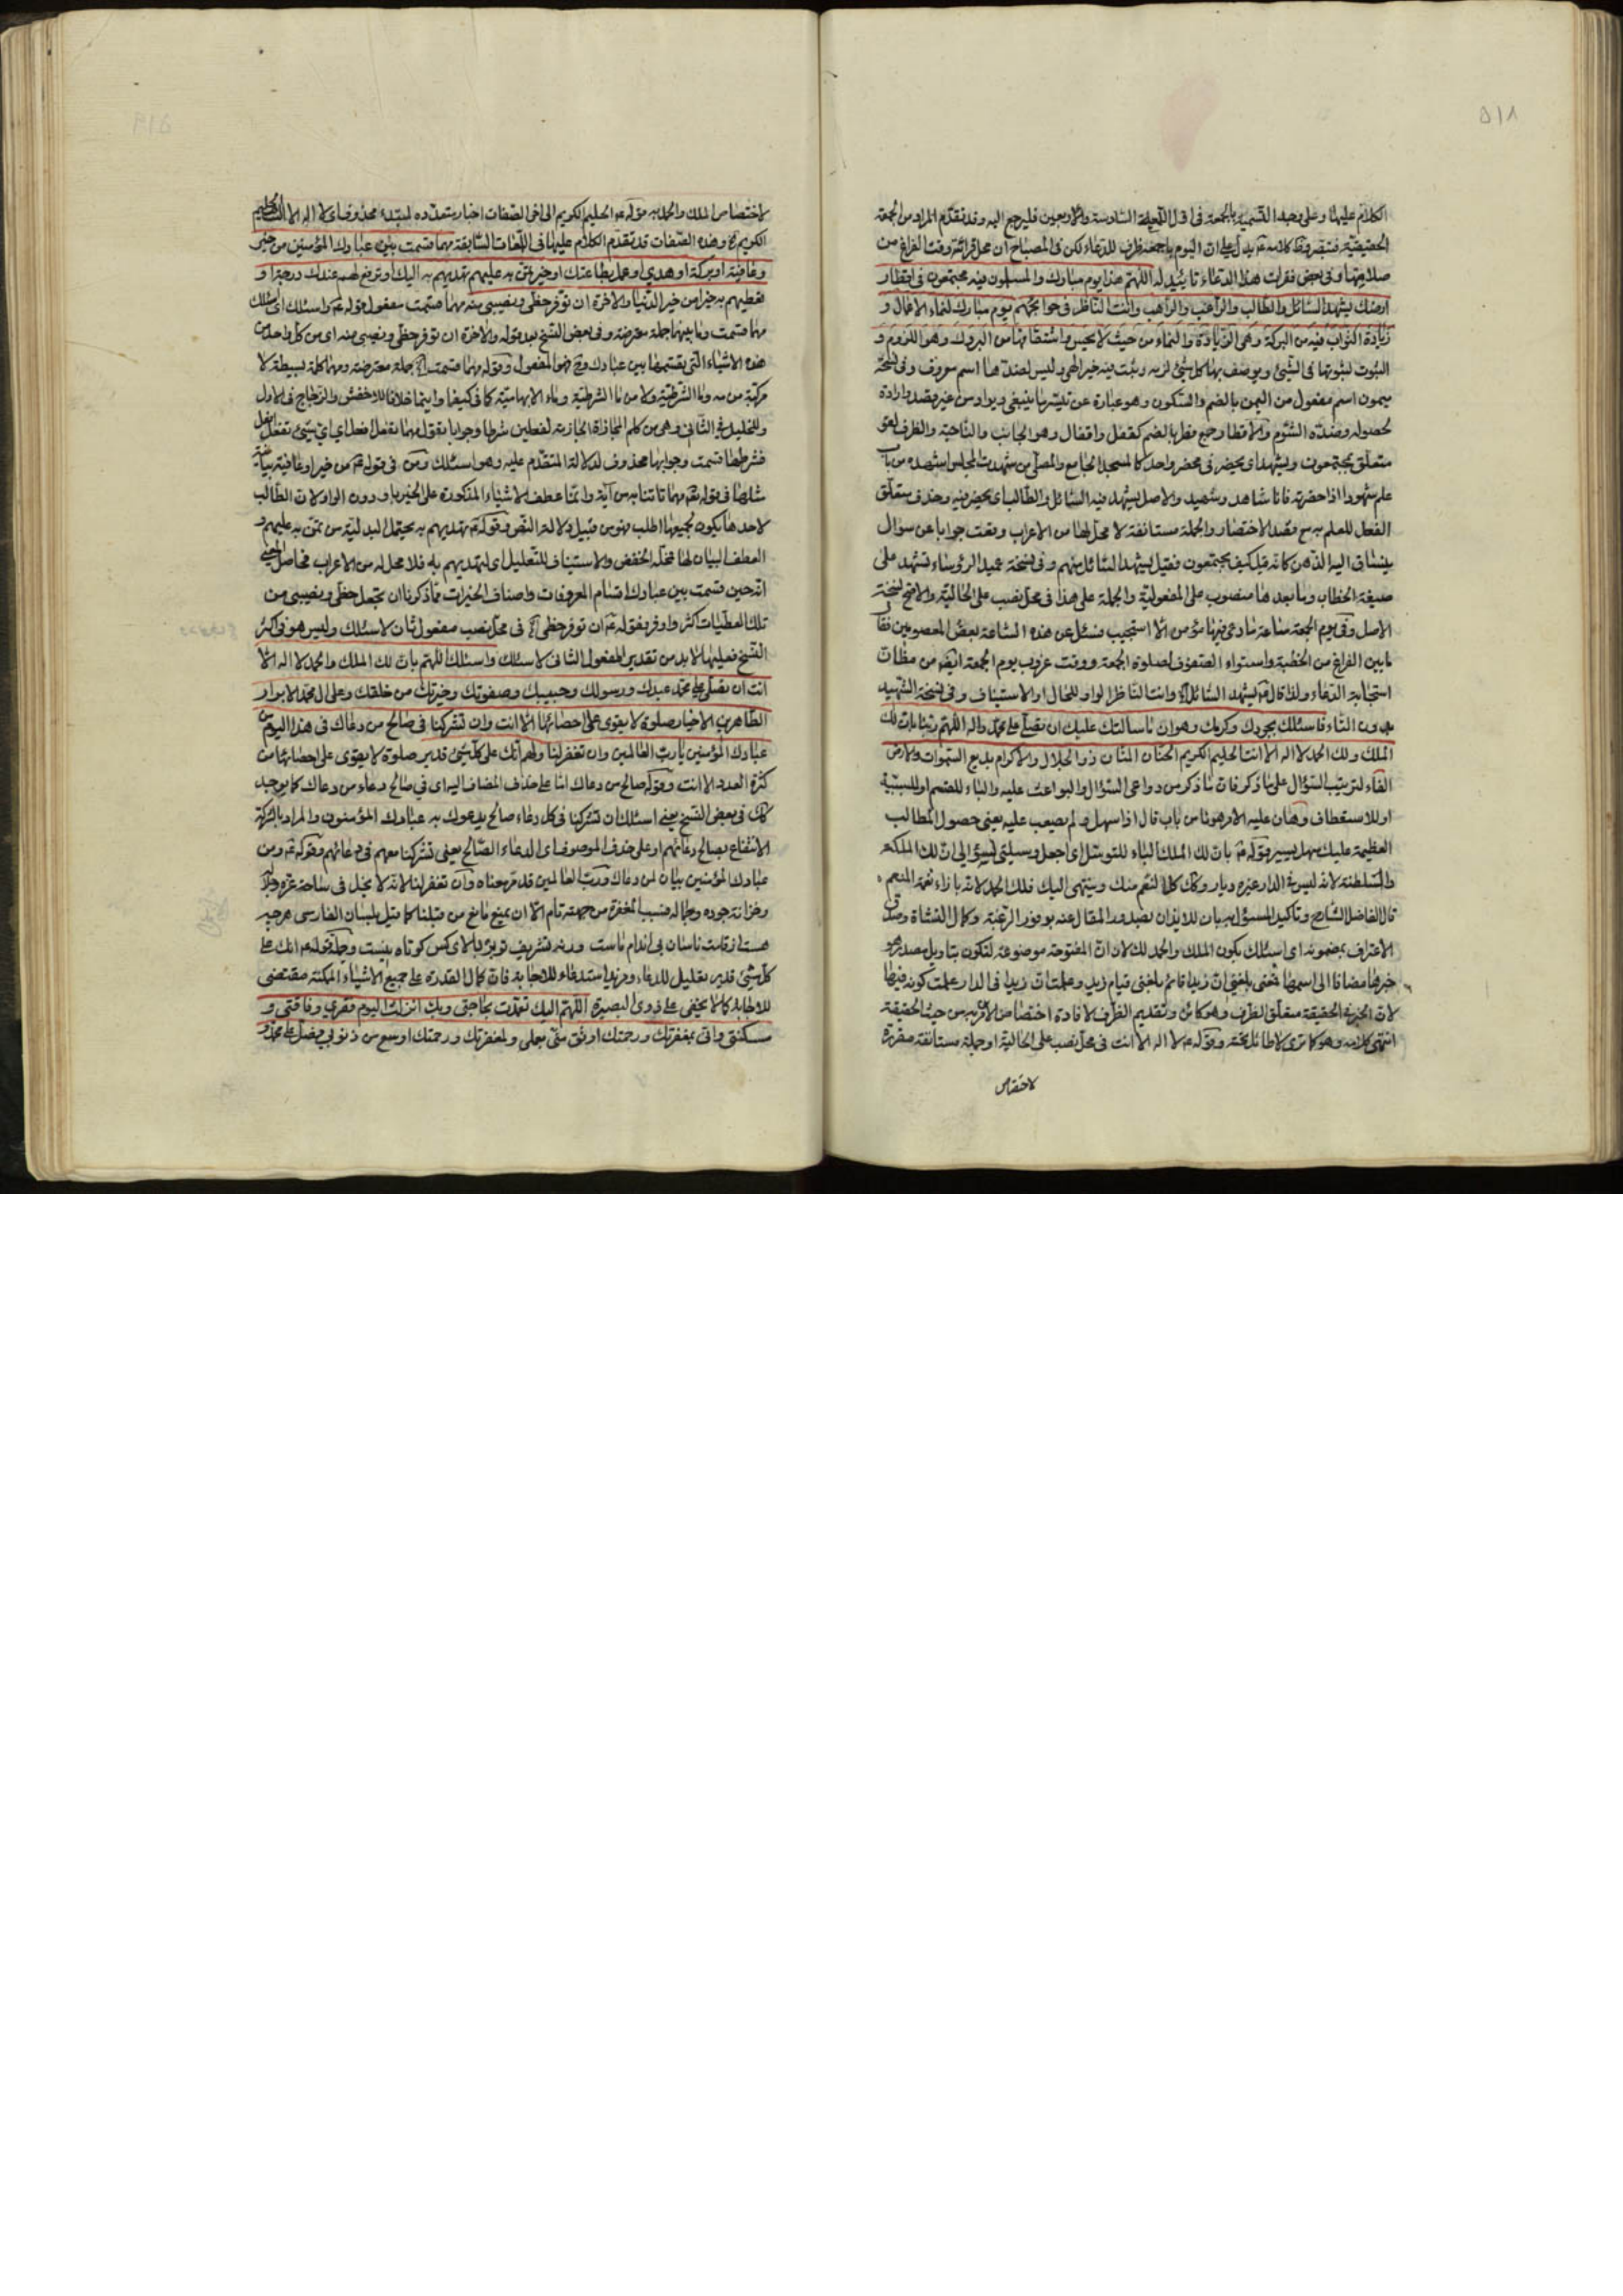 ٥١٨
الكلام عليها وعلى وجه التسمية بالجمعة فى اول اللمعة السادسة والاربعين فليرجع اليه وقد تقدم المراد من الجمعة
الحقيقية فتبصر وظ كلامه ع يدل على ان اليوم باجمعه ظرف للدعاء لكن فى المصباح ان محل قرائته وقت الفراغ من
صلاتها وفى بعض فقرات هذا الدعاء تاييد له اللهم هذا يوم مبارك والمسلمون فيه مجتمعون فى اقطار
ارضك يشهد السائل والطالب والراغب والراهب وانت الناظر فى حوائجهم يوم مبارك لنماء الاعمال و
زيادة الثواب فيه من البركة وهى الزيادة والنماء من حيث لا يحس واشتقاقها من البروك وهو اللزوم و
الثبوت لثبوتها فى الشئ ويوصف بها كل شئ لزمه وثبت فيه خير الهى وليس لضدها اسم معروف وفى نسخة
ميمون اسم مفعول من اليمن بالضم والسكون وهو عبارة عن تيسر ما ينبغى ويراد من غير قصد وارادة
لحصوله وضده الشؤم والاقطار جمع قطر بالضم كقفل واقفال وهو الجانب والناحية والظرف لغو
متعلق بمجتمعون ويشهد اى يحضر فى محضر واحد كالمسجد الجامع والمصلى من شهدت المجلس اشهده من باب
علم شهودا اذا حضرته فانا شاهد وشهيد والاصل يشهد فيه السائل والطالب اى يحضر فيه وحذف متعلق
الفعل للعلم به مع قصد الاختصار والجملة مستانفة لا محل لها من الاعراب وقعت جوابا عن سوال
ينساق اليه الذهن كانه قيل كيف يجتمعون فقيل يشهد السائل منهم وفى نسخة عميد الرؤساء تشهد على
صيغة الخطاب وما بعدها منصوب على المفعولية والجملة على هذا فى محل نصب على الحالية والافصح نسخة
الاصل وفى يوم الجمعة ساعة ما دعى فيها مؤمن الا استجيب فسئل عن هذه الساعة بعض المعصومين فقال
ما بين الفراغ من الخطبة واستواء الصفوف لصلوة الجمعة ووقت غروب يوم الجمعة ايضا من مظان
استجابة الدعاء ولذا قال ع يشهد السائل وانت الناظر الواو للحال او الاستيناف وفى نسخة الشهيد
بدون التاء فاسئلك بجودك وكرمك وهوان ما سالتك عليك ان تصلى على محمد واله اللهم ربنا بان لك
الملك ولك الحمد لا اله الا انت الحليم الكريم الحنان المنان ذو الجلال والاكرام بديع السموات والارض
الفاء لترتيب السؤال على ما ذكر فان ما ذكر من دواعى السؤال والبواعث عليه والباء للقسم او للسببية
او للاستعطاف وهان عليه الامر هونا من باب قال اذا سهل ولم يصعب عليه يعنى حصول المطالب
العظيمة عليك سهل يسير وقوله ع بان لك الملك الباء للتوسل اى اجعل وسيلتى لسؤالى ان لك الملكه
والسلطنة لانه ليس فى الدار غيره ديار وكان كل النعم منك وينتهى اليك فلك الحمد لانه بازاء نعمة المنعم
قال الفاضل الشارح وتاكيد المسؤل به بان للايذان بصدور المقال عنه بوفور الرغبة وكمال النشاة وصدق
الاعتراف بمضمونه اى اسئلك بكون الملك والحمد لك لان ان المفتوحة موضوعة لتكون بتاويل مصدر هو
خبرها مضافا الى اسمها فمعنى بلغنى ان زيدا قائم بلغنى قيام زيد وعلمت ان زيدا فى الدار علمت كونه فيها
لان الخبر فى الحقيقة متعلق الظرف وهو كائن وتقديم الظرف لافادة اختصاص الامرين به من حيث الحقيقة
انتهى كلامه وهو كما ترى لا طائل تحته وقوله ع لا اله الا انت فى محل نصب على الحالية او جملة مستانفة مقررة
لاختصاص
٥١٩
لاختصاص الملك والحمد به وقوله ع الحليم الكريم الى اخر الصفات اخبار متعدده لمبتدء محذوف اى لا اله الا انت الحليم
الكريم الخ وهذه الصفات قد تقدم الكلام عليها فى اللمعات السابقة مهما قسمت بين عبادك المؤمنين من خير
وعافية او بركة او هدى او عمل بطاعتك او خير تمن به عليهم تهديهم به اليك او ترفع لهم عندك درجة او
تعطيهم به خيرا من خير الدنيا والاخرة ان توفر حظى ونصيبى منه مهما قسمت مفعول قوله ع واسئلك اى اسئلك
مهما قسمت وما بينهما جملة معترضة وفى بعض النسخ بعد قوله والاخرة ان توفر حظى ونصيبى منه اى من كل واحد من
هذه الاشياء التى يقسمها بين عبادك وح فهو المفعول وقوله مهما قسمت الخ جملة معترضة ومهما كلمة بسيطة لا
مركبة من مه وما الشرطية ولا من ما الشرطية وماء الابهامية كما فى كيفما واينما خلافا للاخفش والزجاج فى الاول
وللخليل فى الثانى وهو من كلم المجازاة الجازمة لفعلين شرطا وجوابا تقول مهما تفعل افعل اى اى شئ تفعل افعل
فشرطها قسمت وجوابها محذوف لدلالة المتقدم عليه وهو اسئلك ومن فى قوله ع من خير او عافية بيانية
مثلها فى قوله تع مهما تاتنا به من آية وانما عطف الاشياء المذكورة على الخير باو دون الواو لان الطالب
لاحدها يكون لجميعها اطلب فهو من قبيل دلالة النص وقوله ع تهديهم به يحتمل البدلية من تمن به عليهم و
العطف البيان لها فمحله الخفض والاستيناف للتعليل اى لتهديهم به فلا محل له من الاعراب فحاصل المعنى
انه حين قسمت بين عبادك اقسام المعروفات واصناف الخيرات مما ذكرنا ان تجعل حظى ونصيبى من
تلك العطيات اكثر واوفر فقوله ع ان توفر حظى الخ فى محل نصب مفعول ثان لاسئلك وليس هو فى اكثر
النسخ فعليها لابد من تقدير المفعول الثانى لاسئلك واسئلك اللهم بان لك الملك والحمد لا اله الا
انت ان تصلى على محمد عبدك ورسولك وحبيبك وصفوتك وخيرتك من خلقك وعلى ال محمد الابرار
الطاهرين الاخيار صلوة لا يقوى على احصائها الا انت وان تشركنا فى صالح من دعاك فى هذا اليوم من
عبادك المؤمنين يا رب العالمين وان تغفر لنا ولهم انك على كل شئ قدير صلوة لا يقوى على احصائها من
كثرة العدد الا انت وقوله صالح من دعاك اما على حذف المضاف اليه اى فى صالح دعاء من دعاك كما يوجد
كك فى بعض النسخ يعنى اسئلك ان تشركنا فى كل دعاء صالح يدعوك به عبادك المؤمنون والمراد بالشركة
الانتفاع بصالح دعائهم او على حذف الموصوف اى الدعاء الصالح يعنى تشركنا معهم فى دعائهم وقوله ع من
عبادك المؤمنين بيان لمن دعاك ورب العالمين قد مر معناه وان تغفر لنا لانه لا بخل فى ساحة عزه وجلاله
وخزانة جوده وجماله فسبب المغفرة من جهته تام الا ان يمنع مانع من قبلنا كما قيل بلسان الفارسى هرچه
هست از قامت ناساز بى اندام ماست ورنه تشريف تو بر بالاى كس كوتاه نيست وجملة قوله ع انك على
كل شئ قدير تعليل للدعاء ومزيد استدعاء للاجابة فان كمال القدرة على جميع الاشياء الممكنة مقتضى
للاجابة كما لا يخفى على ذوى البصيرة اللهم اليك تعمدت بحاجتى وبك انزلت اليوم فقرى وفاقتى و
مسكنتى وانى بمغفرتك ورحمتك اوثق منى بعملى ولمغفرتك ورحمتك اوسع من ذنوبى فصل على محمد و